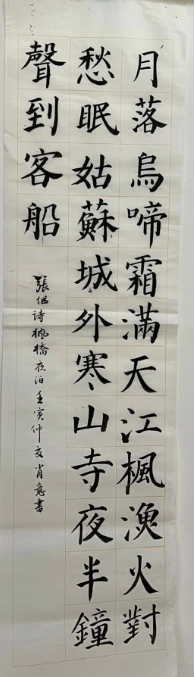 月落烏啼霜滿天江楓漁火對
愁眠姑蘇城外寒山寺夜半鐘
聲到客船
張繼詩楓橋夜泊壬寅仲夏肖意書